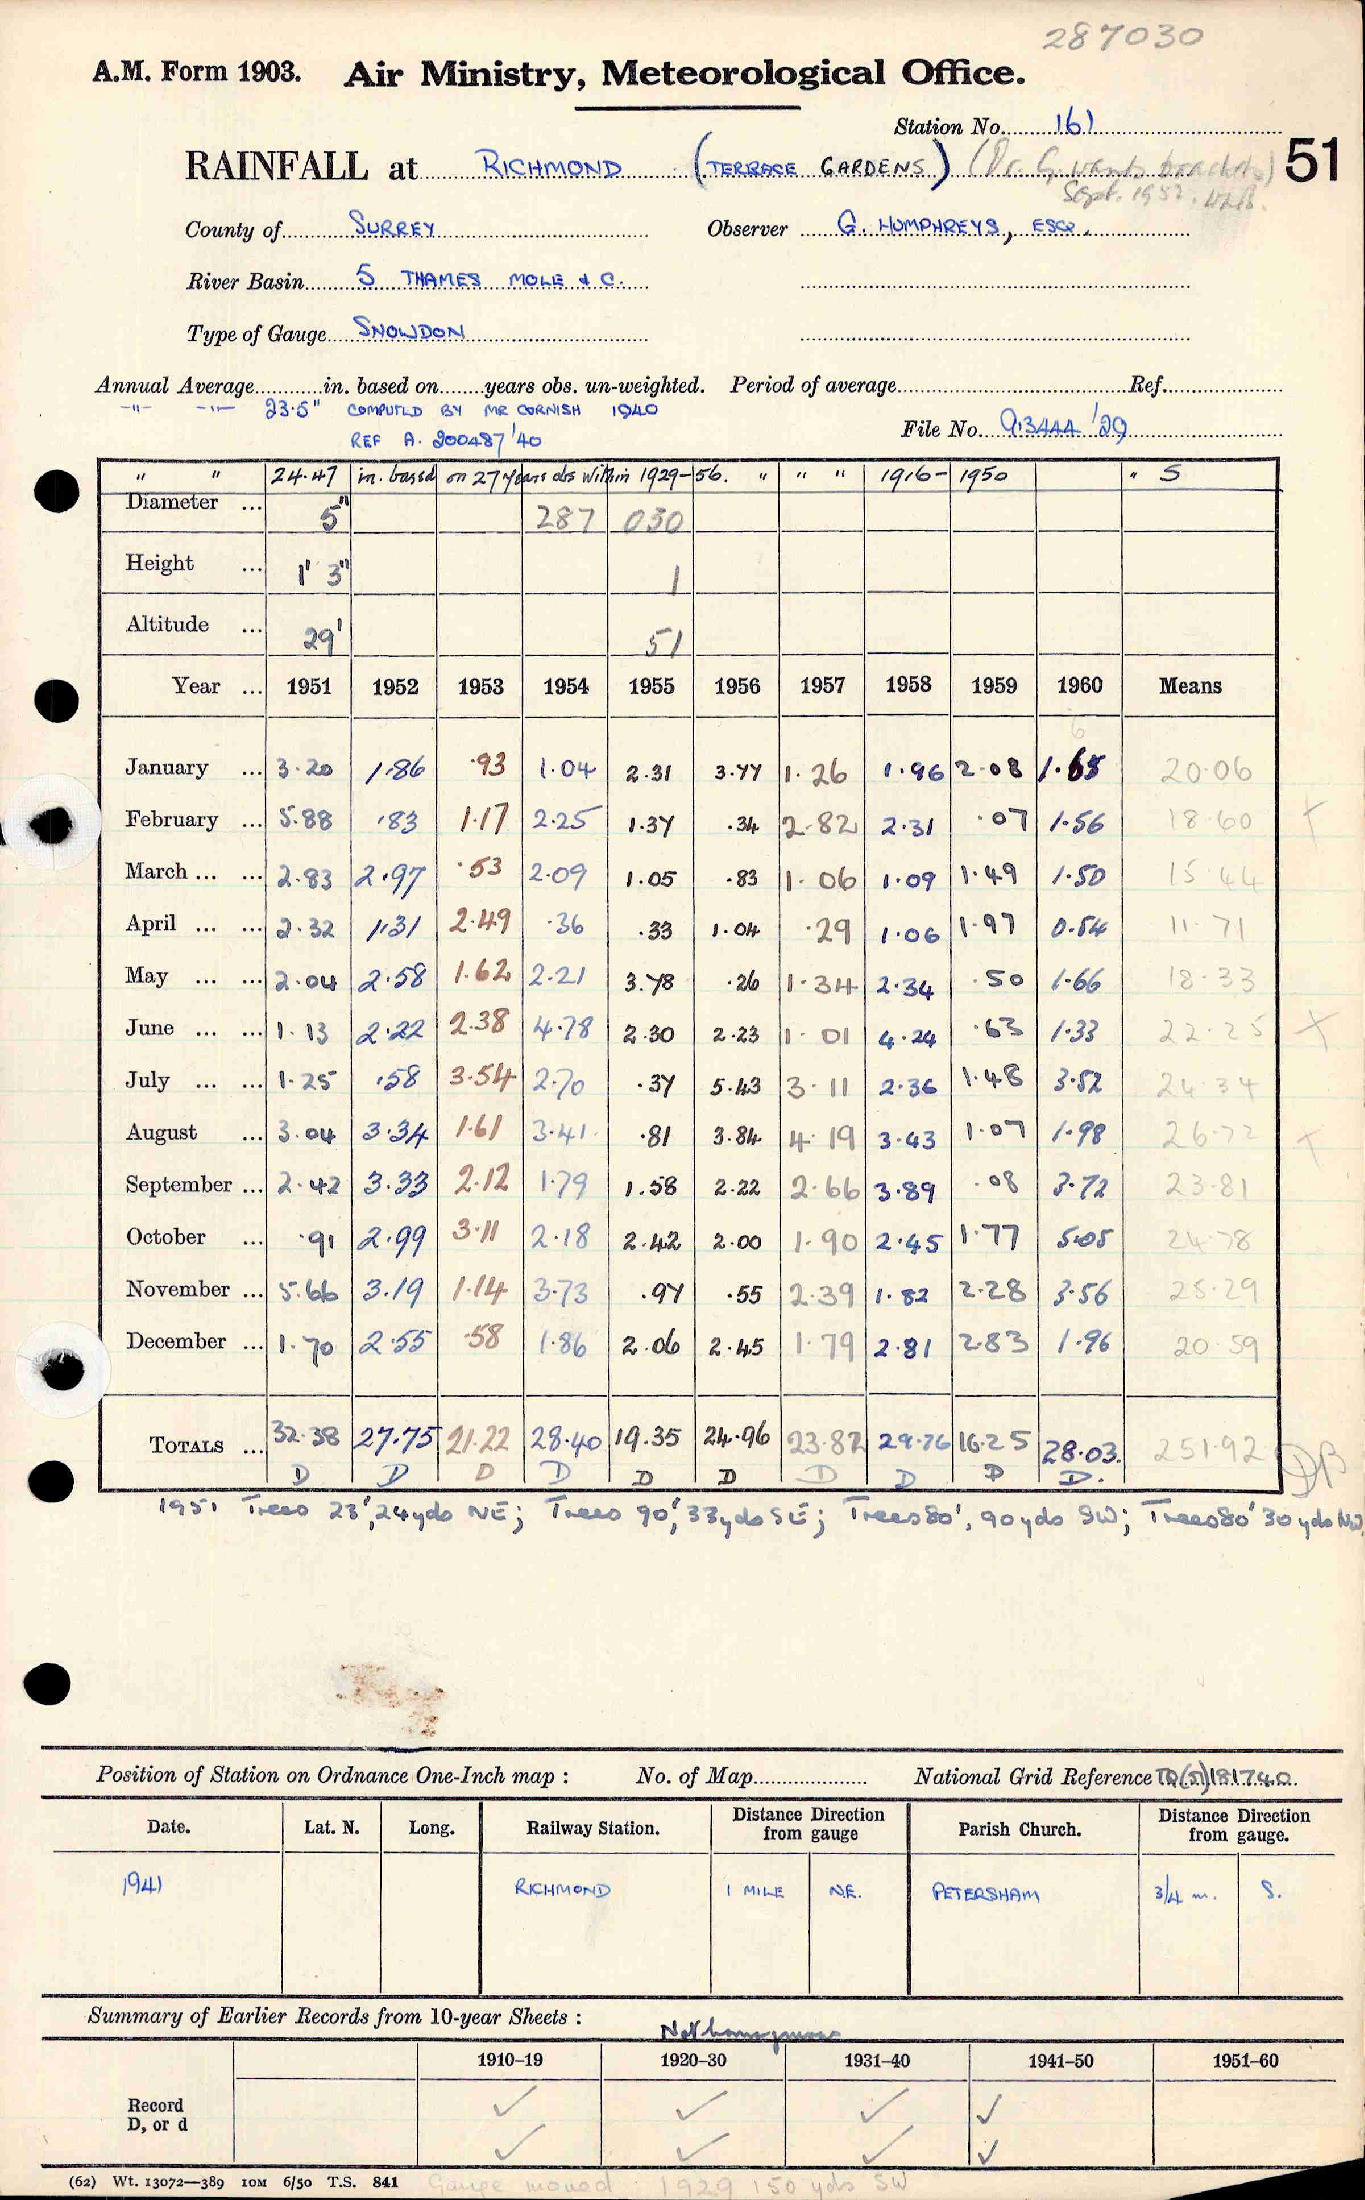 287030
A.M. Form 1903. Air Ministry, Meteorological Office.
Station No. 161
RAINFALL at RICHMOND (TERRACE GARDENS) (Dr. G. wants brackets) 51
Sept. 1952.
County of SURREY Observer G. HUMPHREYS, ESQ.
River Basin 5 THAMES MOLE & C.
Type of Gauge SNOWDON
Annual Average in. based on years obs. un-weighted. Period of average Ref.
-"- -"- 23.5" COMPUTED BY MR CORNISH 1940
REF A. 200487/40
File No. 913444/29
" " 24.47 in. based on 27 years obs within 1929-56. " " " 1916-1950 " S
Diameter ... 5" 287 030
Height ... 1' 3" 1
Altitude ... 29' 51
Year ... 1951 1952 1953 1954 1955 1956 1957 1958 1959 1960 Means
6
January ... 3.20 1.86 .93 1.04 2.31 3.77 1.26 1.96 2.08 1.65 20.06
February ... 5.88 .83 1.17 2.25 1.37 .34 2.82 2.31 .07 1.56 18.60
March ... ... 2.83 2.97 .53 2.09 1.05 .83 1.06 1.09 1.49 1.50 15.44
April ... ... 2.32 1.31 2.49 .36 .33 1.04 .29 1.06 1.97 0.54 11.71
May ... ... 2.04 2.58 1.62 2.21 3.78 .26 1.34 2.34 .50 1.66 18.33
June ... ... 1.13 2.22 2.38 4.78 2.30 2.23 1.01 4.24 .63 1.33 22.25
July ... ... 1.25 .58 3.54 2.70 .37 5.43 3.11 2.36 1.48 3.52 24.34
August ... 3.04 3.34 1.61 3.41 .81 3.84 4.19 3.43 1.07 1.98 26.72
September ... 2.42 3.33 2.12 1.79 1.58 2.22 2.66 3.89 .08 3.72 23.81
October ... .91 2.99 3.11 2.18 2.42 2.00 1.90 2.45 1.77 5.05 24.78
November ... 5.66 3.19 1.14 3.73 .97 .55 2.39 1.82 2.28 3.56 25.29
December ... 1.70 2.55 .58 1.86 2.06 2.45 1.79 2.81 2.83 1.96 20.59
TOTALS ... 32.38 27.75 21.22 28.40 19.35 24.96 23.82 29.76 16.25 28.03. 251.92
D D D D D D D D D D.
1951 Trees 23', 24yds NE; Trees 90', 33yds SE; Trees 80', 90yds SW; Trees 80' 30 yds NW
Position of Station on Ordnance One-Inch map : No. of Map National Grid Reference TQ(51)181740
Date. Lat. N. Long. Railway Station. Distance Direction from gauge Parish Church. Distance Direction from gauge.
1941 RICHMOND 1 MILE N.E. PETERSHAM 3/4 m. S.
Summary of Earlier Records from 10-year Sheets :
Not homogeneous
1910–19 1920–30 1931–40 1941–50 1951–60
Record ✓ ✓ ✓ ✓
D, or d ✓ ✓ ✓ ✓
(62) Wt. 13072—389 10M 6/50 T.S. 841 Gauge moved 1929 150 yds SW